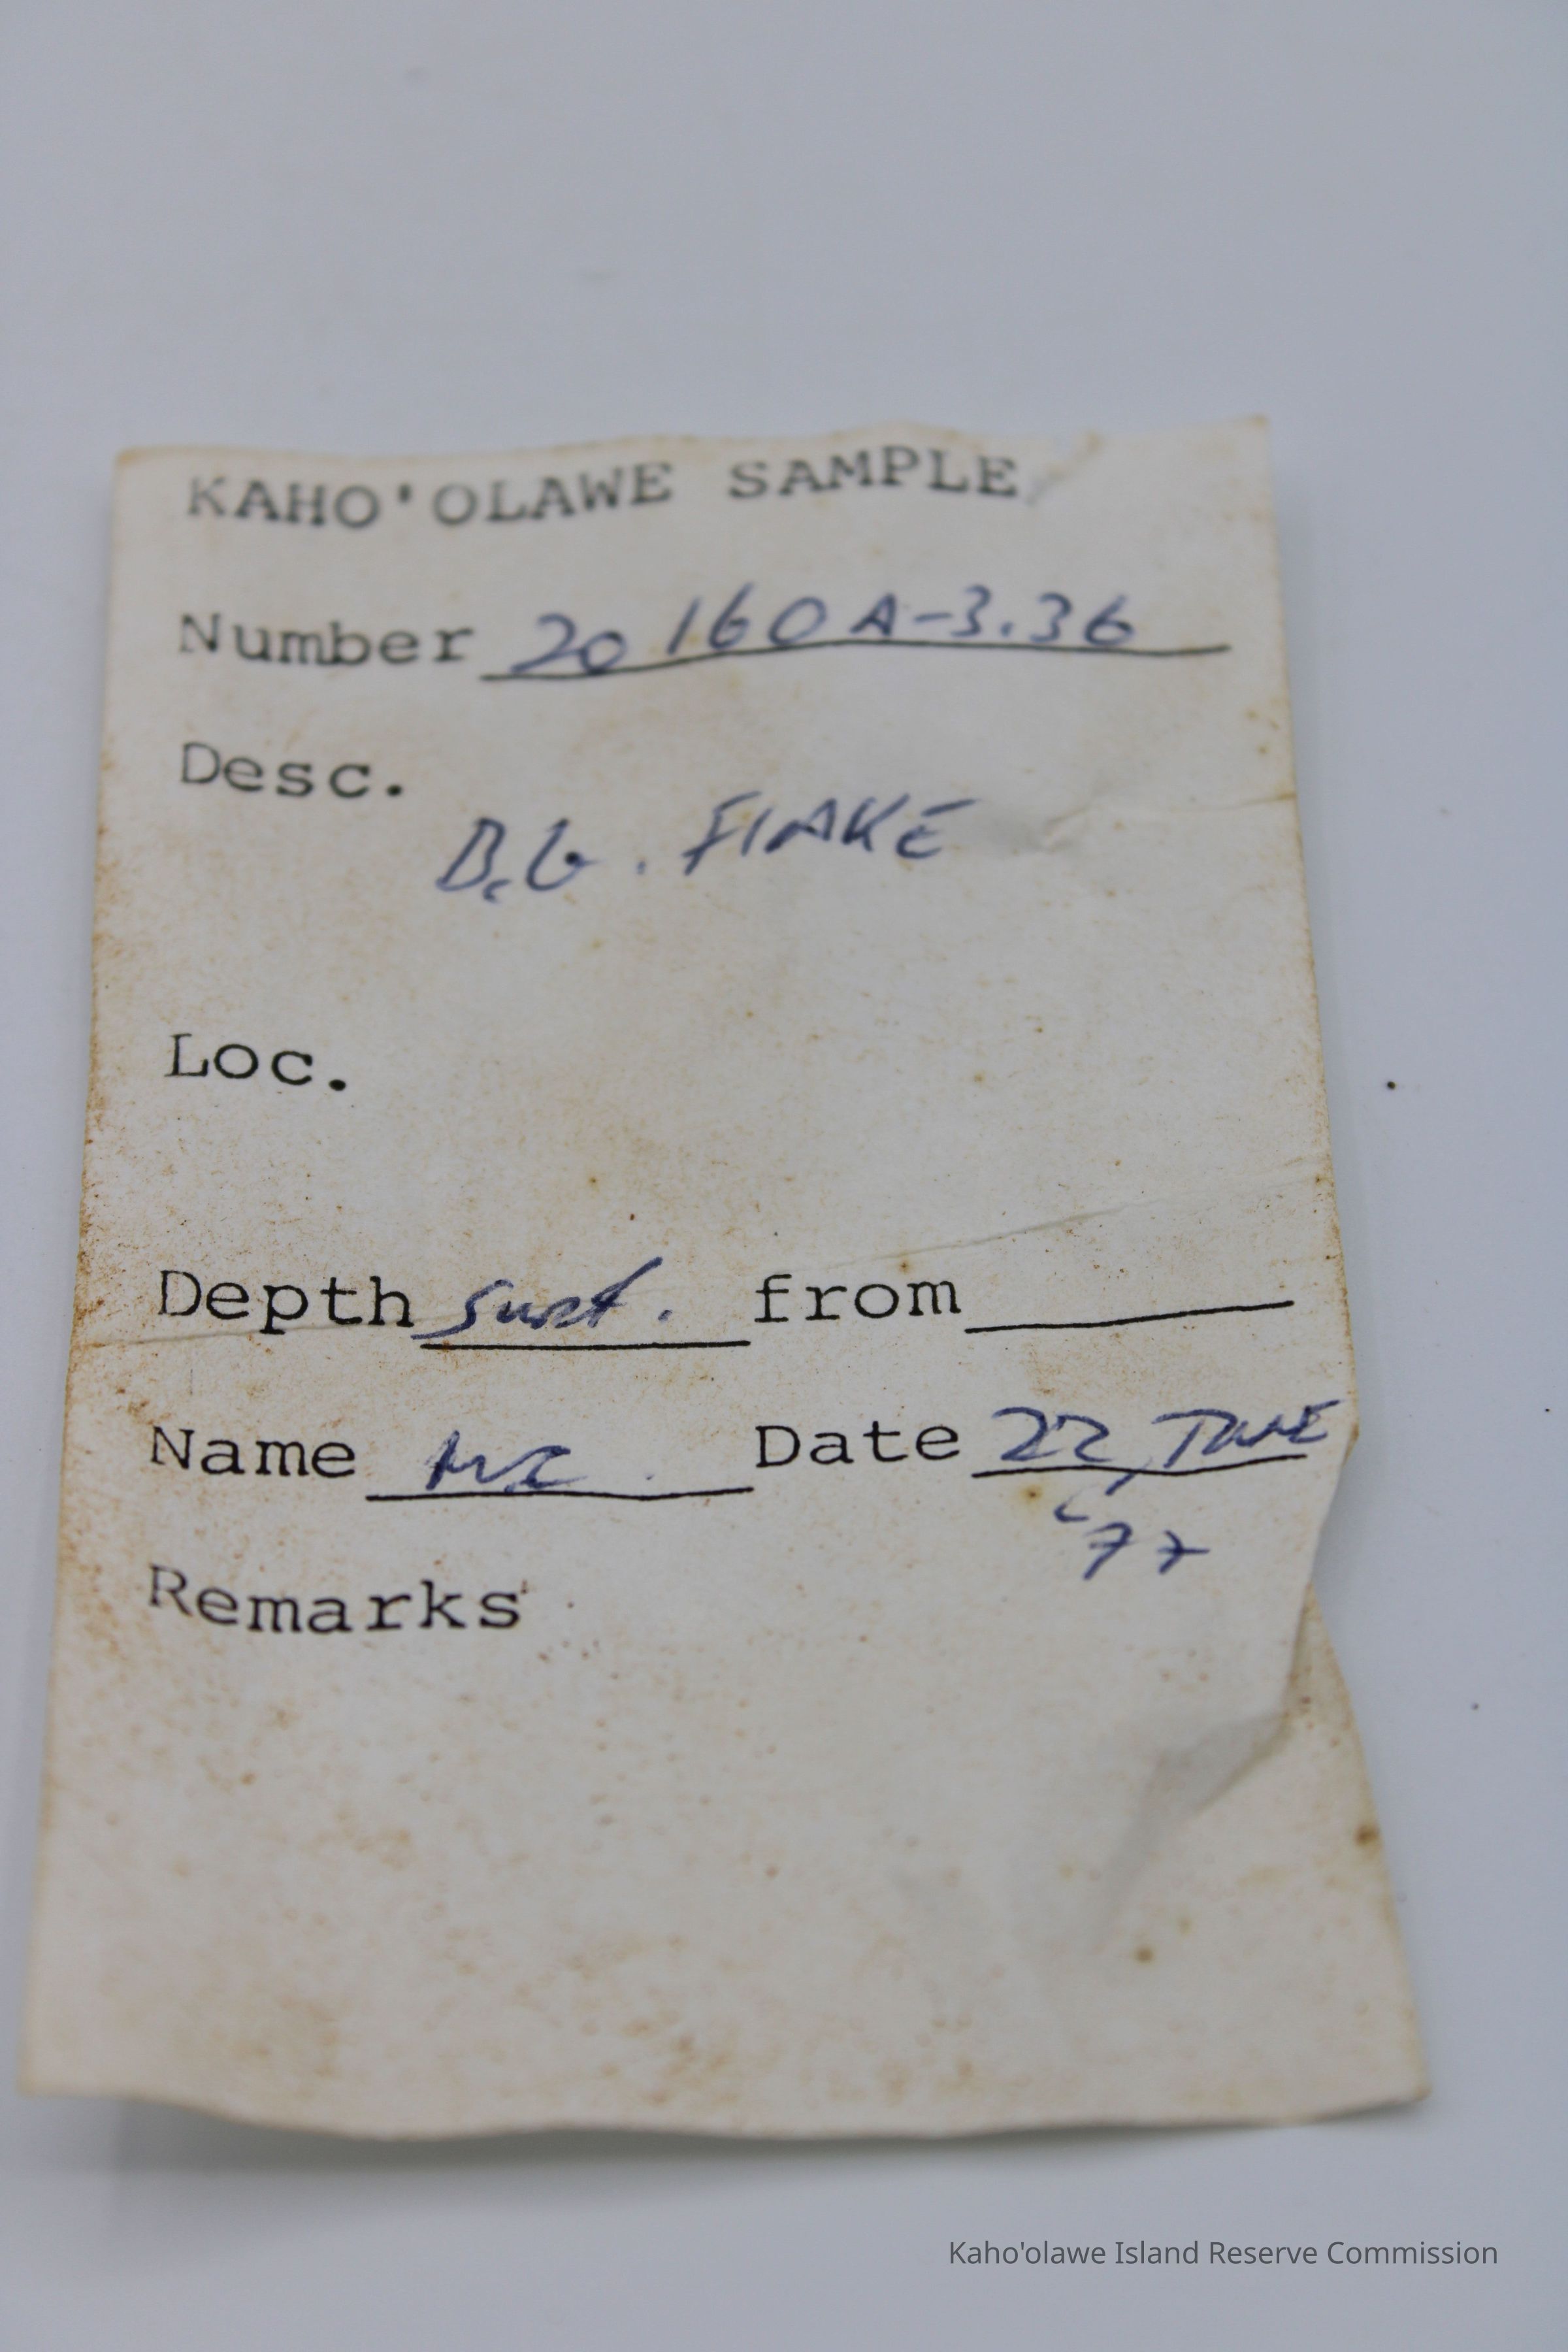 KAHO'OLAWE SAMPLE
Number 20160A-3.36
Desc.
B.G. FLAKE
Loc.
Depth surf. from
Name Date 22 JUNE
'77
Remarks
Kaho'olawe Island Reserve Commission